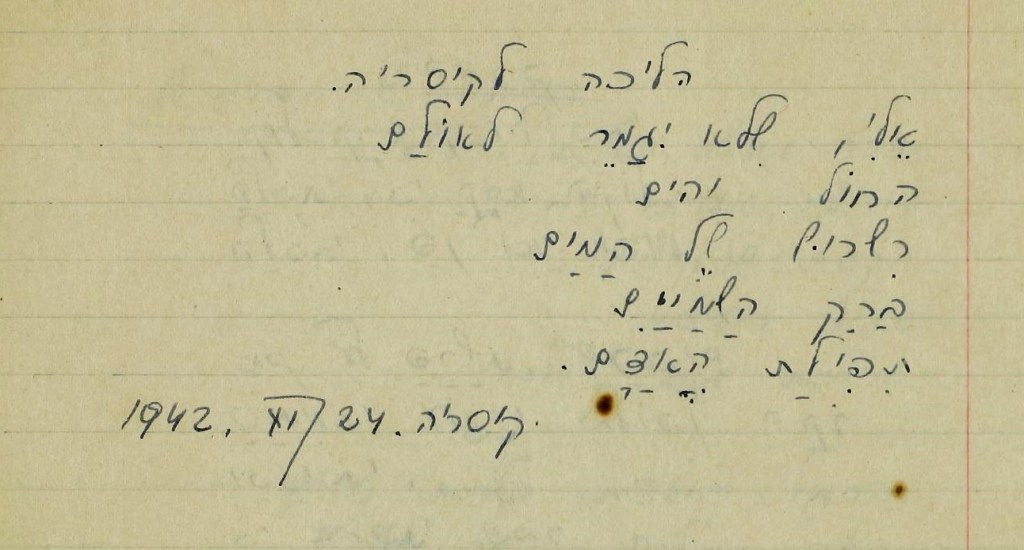 הליכה לקיסריה.
אֵלִי, שלא יִגָמֵר לאוֹלָם
החול והים
רִשרוּש שֶל הַמַים
בַרַק הַשָמַיִים
תפִילַת הָאָדָם.
קיסריה. 24/XI. 1942